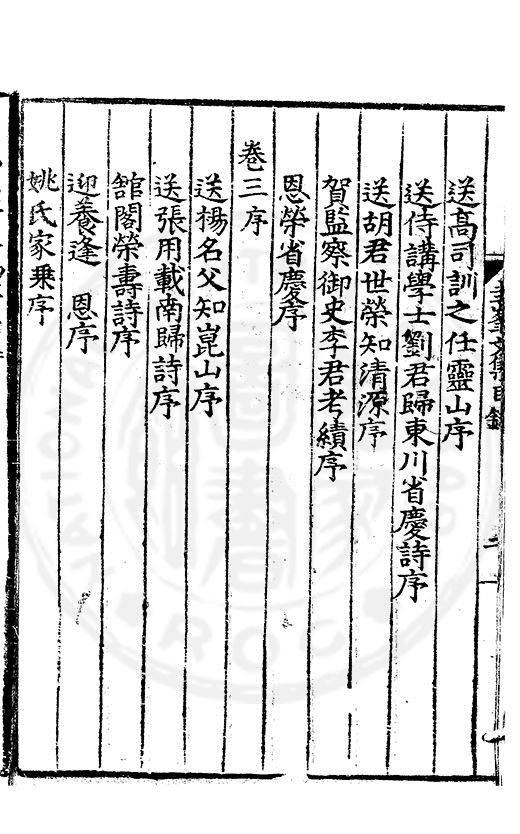 送高司訓之任靈山序
送侍講學士劉君歸東川省慶詩序
送胡君世榮知清源序
賀監察御史李君考績序
恩榮省慶序
卷三序
送楊名父知崑山序
送張用載南歸詩序
舘閣榮壽詩序
迎養逢　恩序
姚氏家乗序